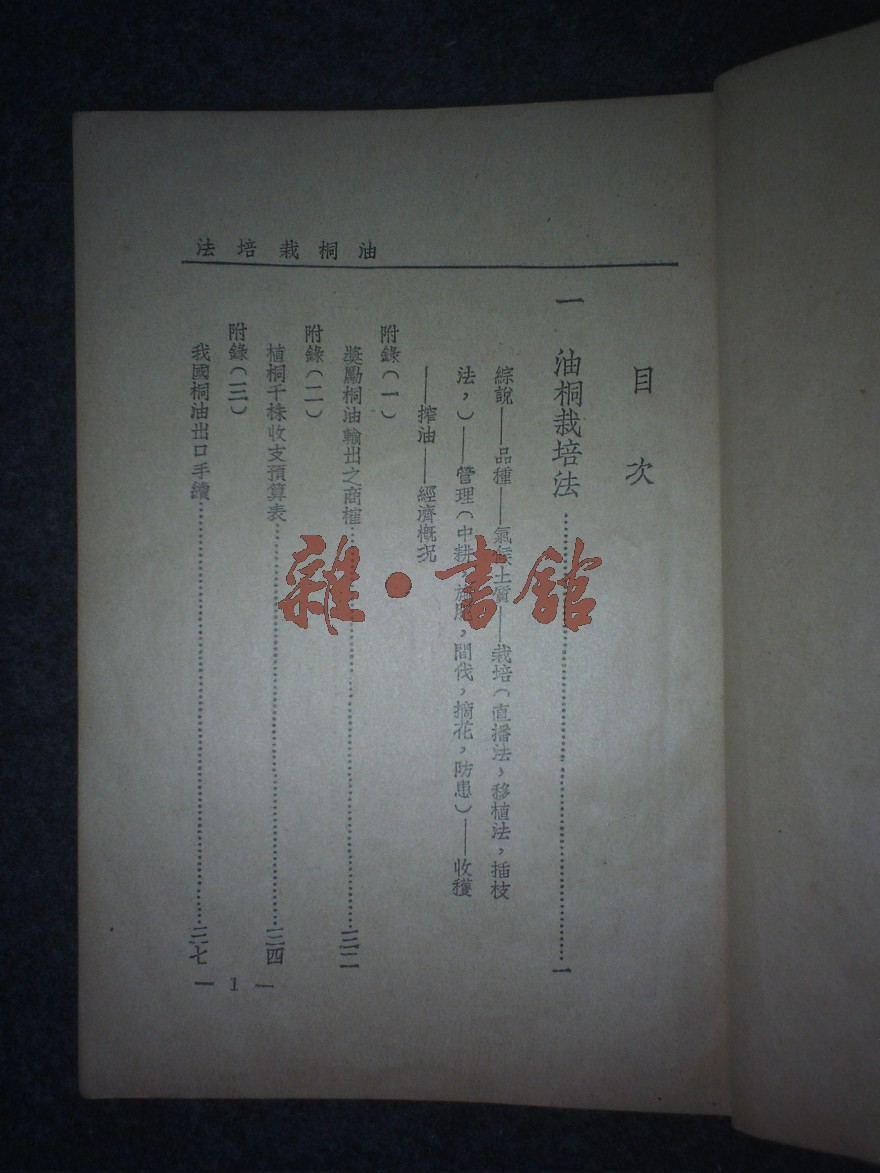 油桐栽培法
目次
一 油桐栽培法……一
綜說——品種——氣候土質——栽培(直播法,移植法,插枝
法,)——管理(中耕,施肥,間伐,摘花,防患)——收穫
——搾油——經濟概況
附錄(一)
獎勵桐油輸出之商榷……三二
附錄(二)
植桐千株收支預算表……三四
附錄(三)
我國桐油出口手續……三七
— 1 —
雜·書館